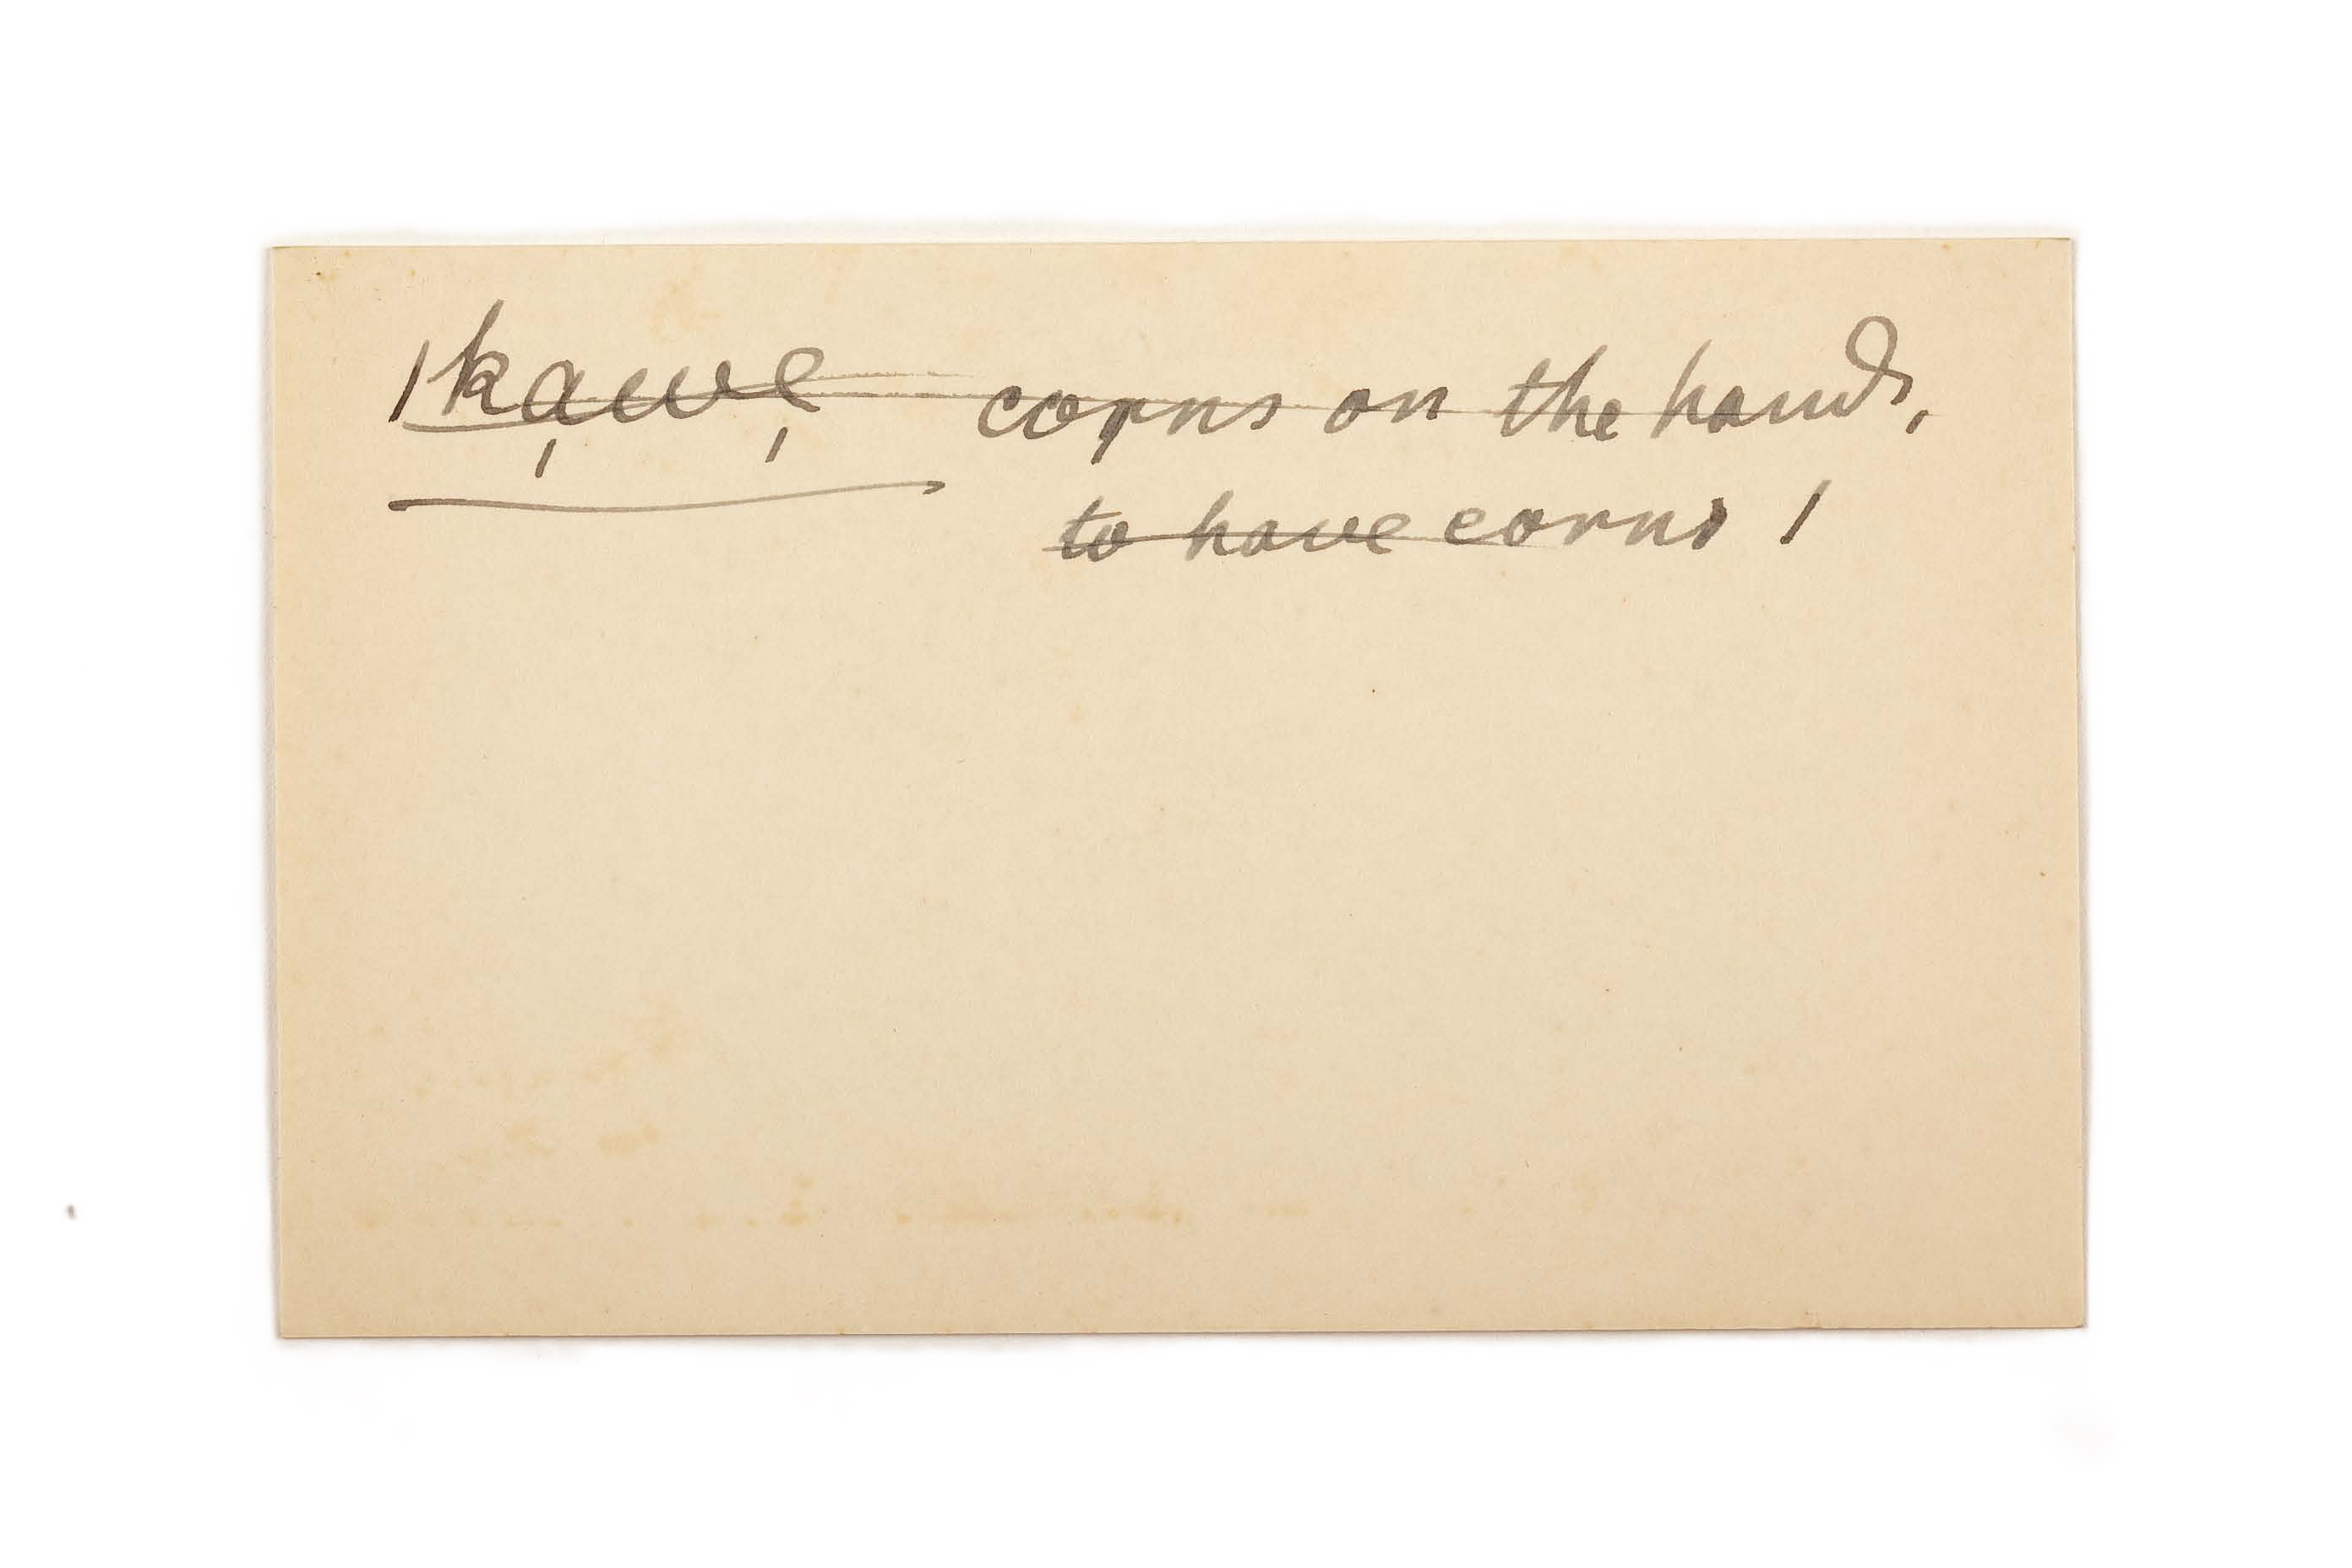 Ika̩we̩ corns on the hands,
to have corns /